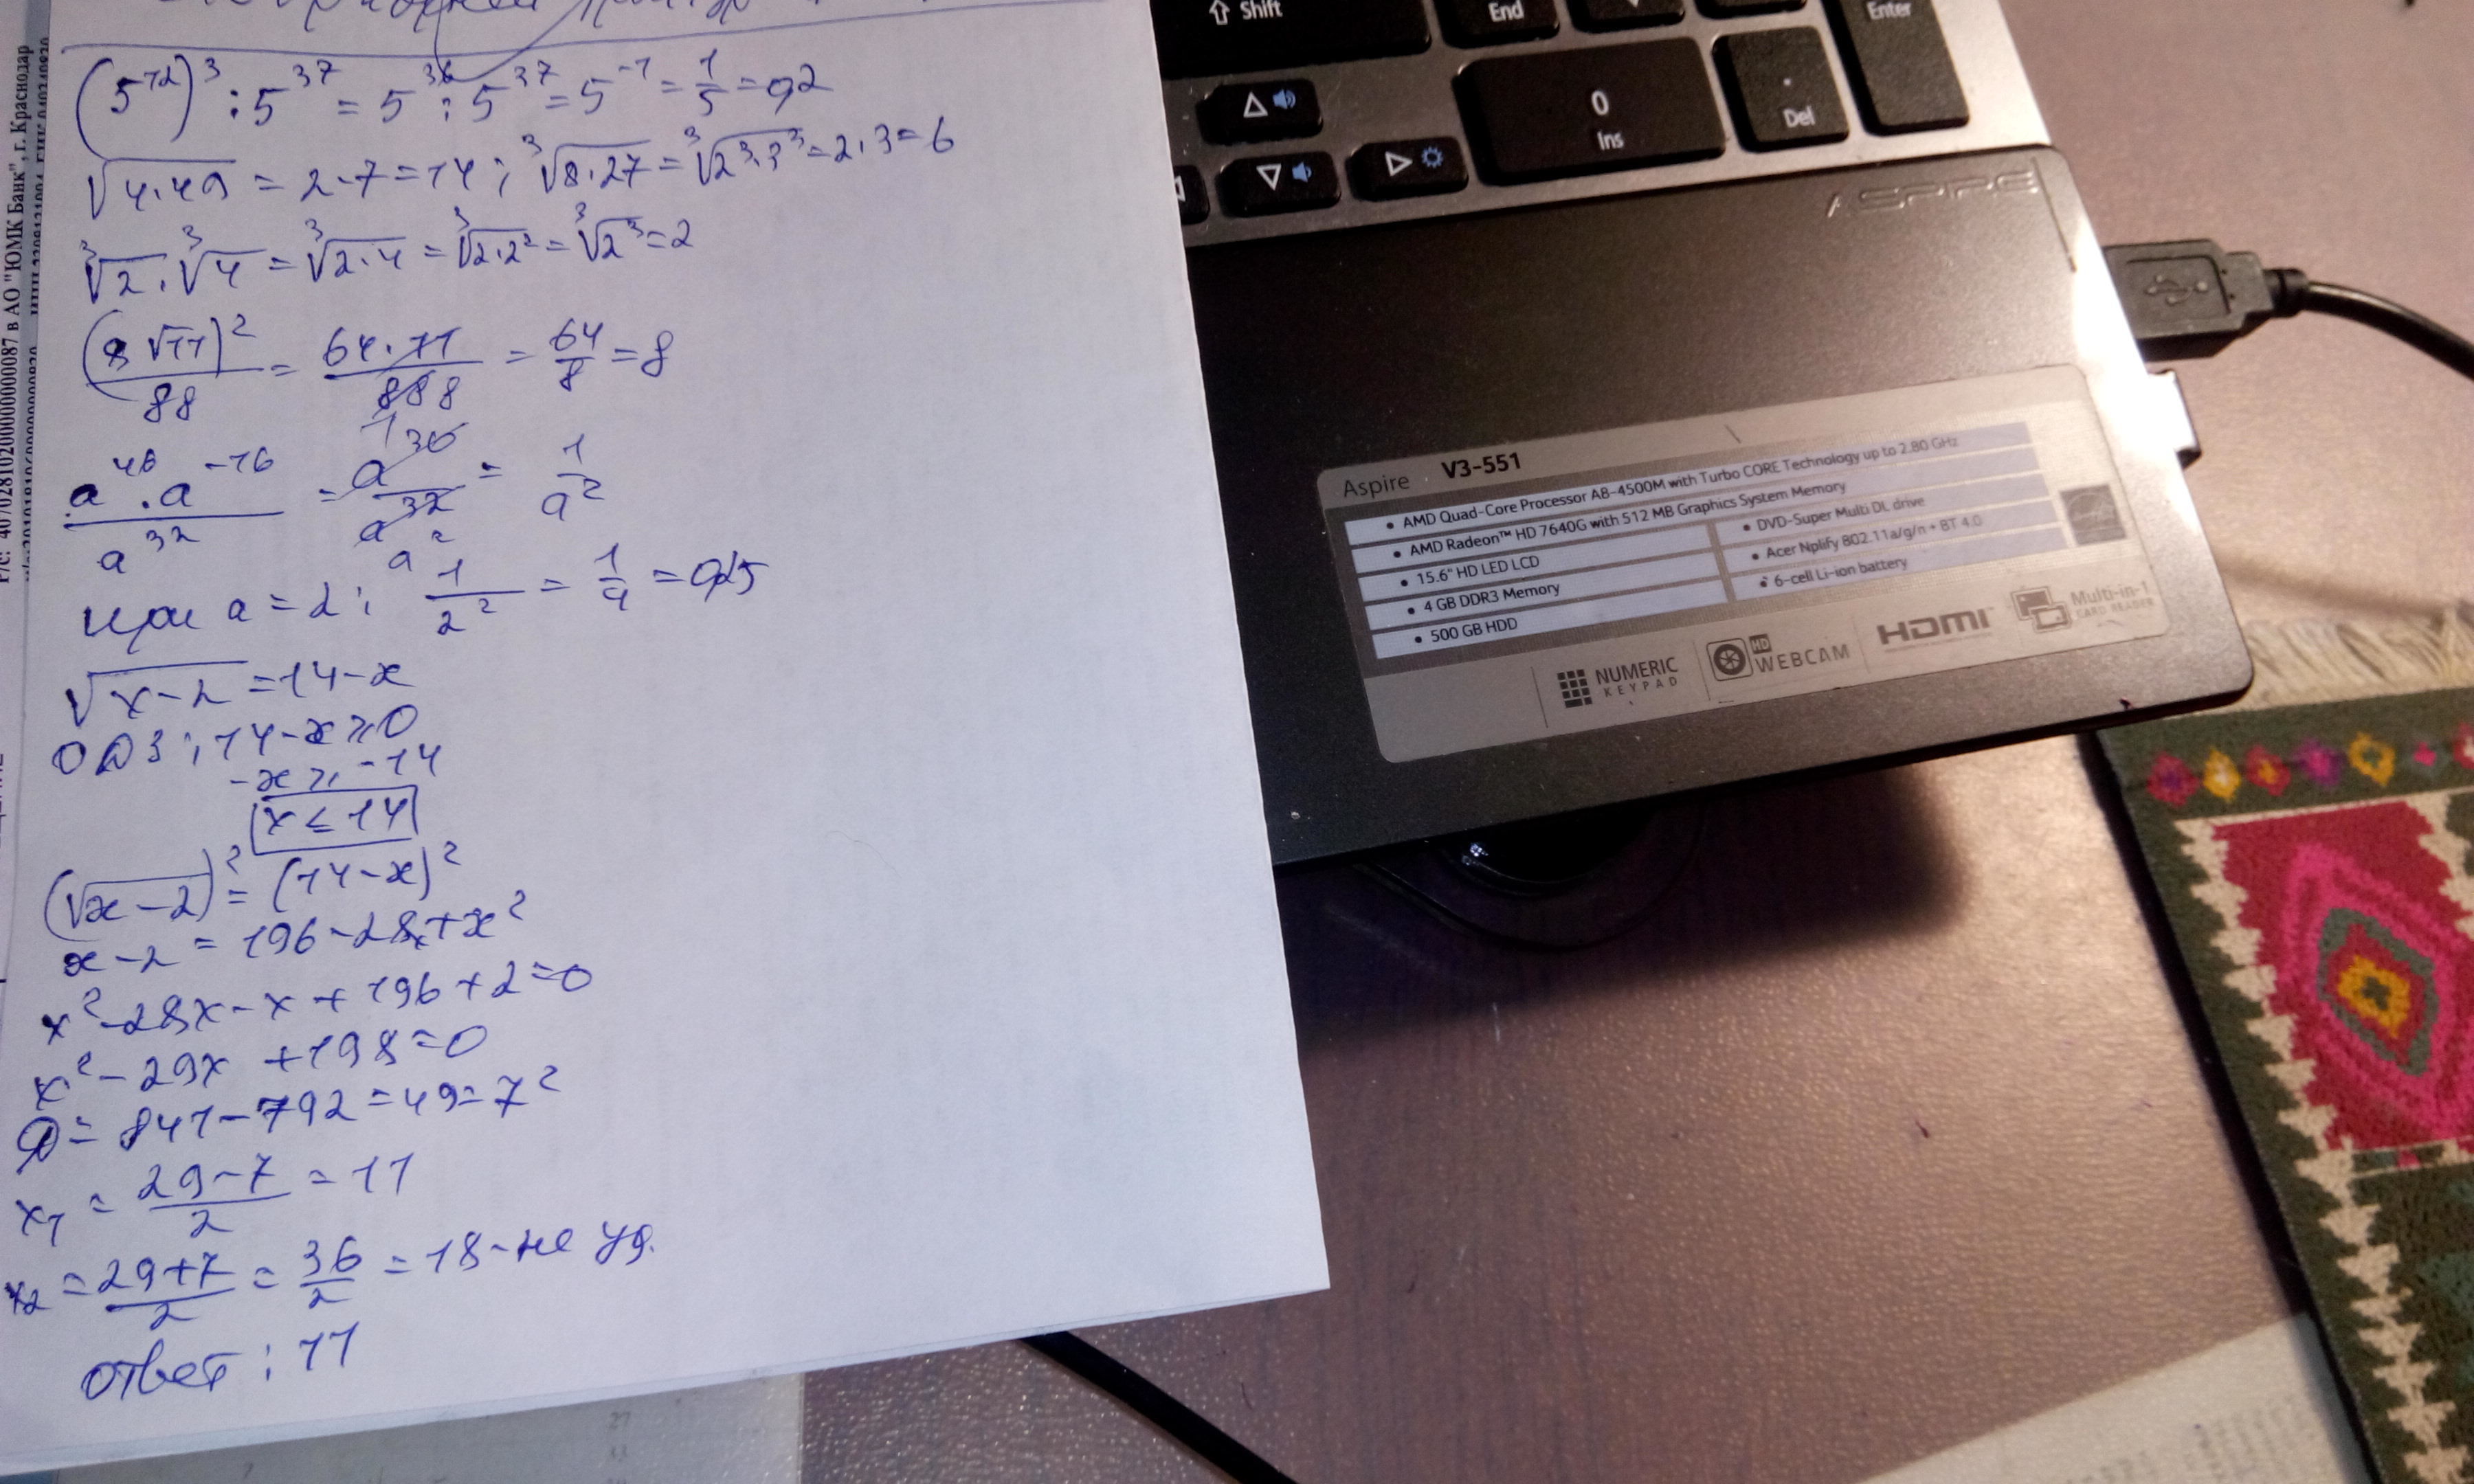 (5¹²)³ : 5³⁷ = 5³⁶ : 5³⁷ = 5⁻¹ = 1/5 = 0,2
√(4·49) = 2·7 = 14 ; ³√(8·27) = ³√(2³·3³) = 2·3 = 6
³√2 · ³√4 = ³√(2·4) = ³√(2·2²) = ³√(2³) = 2
(8√11)²/88 = 64·11/88 8 = 64/8 = 8
a⁴⁶·a⁻¹⁶/a³² = a³⁰/a³² = 1/a²
1
a²
при a = 2 : 1/2² = 1/4 = 0,25
√(x-2) = 14-x
ОДЗ : 14-x ≥ 0
-x ≥ -14
x ≤ 14
(√(x-2))² = (14-x)²
x-2 = 196-28x+x²
x²-28x-x+196+2=0
x²-29x+198=0
D = 841-792=49=7²
x₁ = (29-7)/2 = 11
x₂ = (29+7)/2 = 36/2 = 18 - не уд.
ответ : 11
в АО "ЮМК Банк", г. Краснодар
Shift
End
Enter
0
Ins
.
Del
ASPIRE
Aspire V3-551
• AMD Quad-Core Processor A8-4500M with Turbo CORE Technology up to 2.80 GHz
• AMD Radeon™ HD 7640G with 512 MB Graphics System Memory
• 15.6" HD LED LCD
• 4 GB DDR3 Memory
• 500 GB HDD
• DVD-Super Multi DL drive
• Acer Nplify 802.11a/g/n + BT 4.0
• 6-cell Li-ion battery
NUMERIC
KEYPAD
HD
WEBCAM
HDMI
Multi-in-1
CARD READER